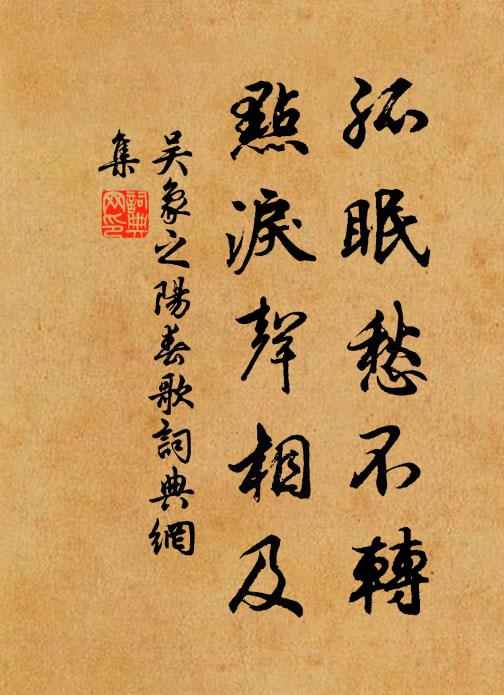 孤眠愁不轉
點淚聲相及
吴象之陽春歌詞典網
集
詞典
网印